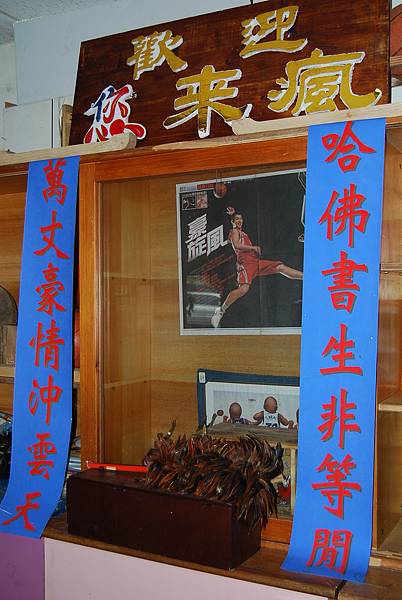 歡迎
您來瘋
哈佛書生非等閒
萬丈豪情沖雲天
豪
旋風